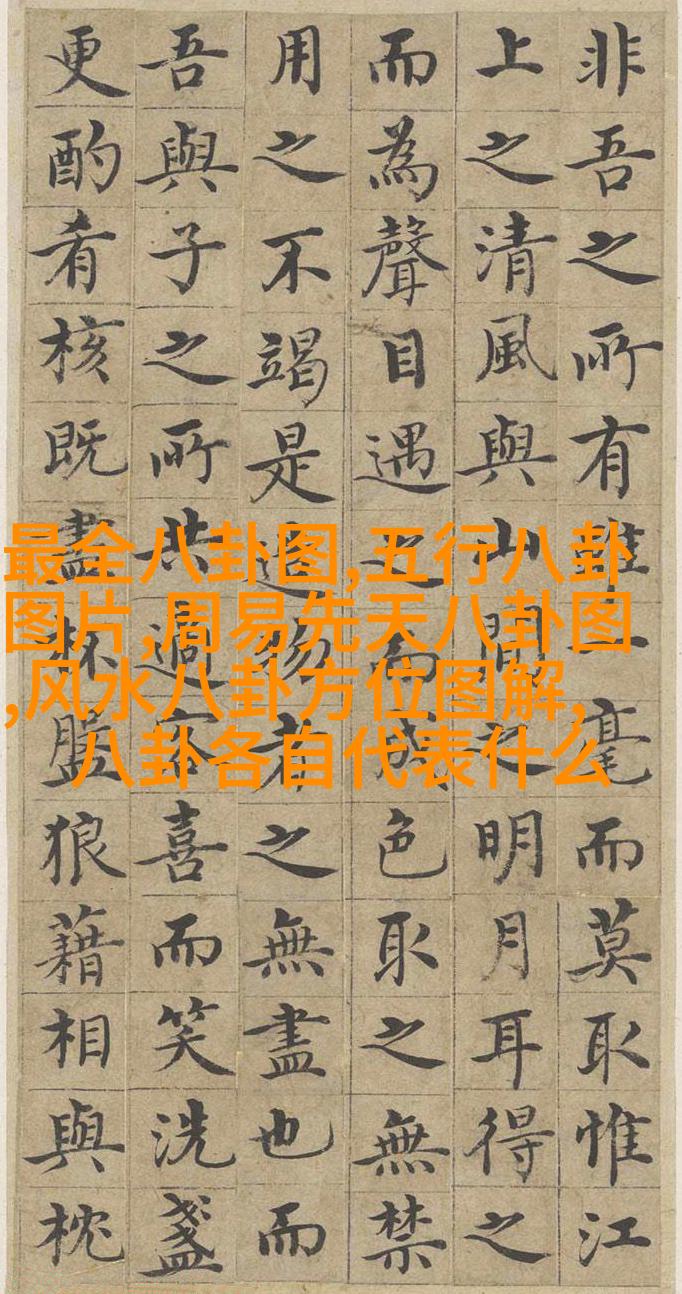 非吾之所有雖一毫而莫取惟江
上之清風與山間之明月耳得之
而為聲目遇之而成色取之無禁
用之不竭是造物者之無盡也而
吾與子之所共適客喜而笑洗盞
更酌肴核既盡杯盤狼藉相與枕
最全八卦图,五行八卦
图片,周易先天八卦图
,风水八卦方位图解,
八卦各自代表什么